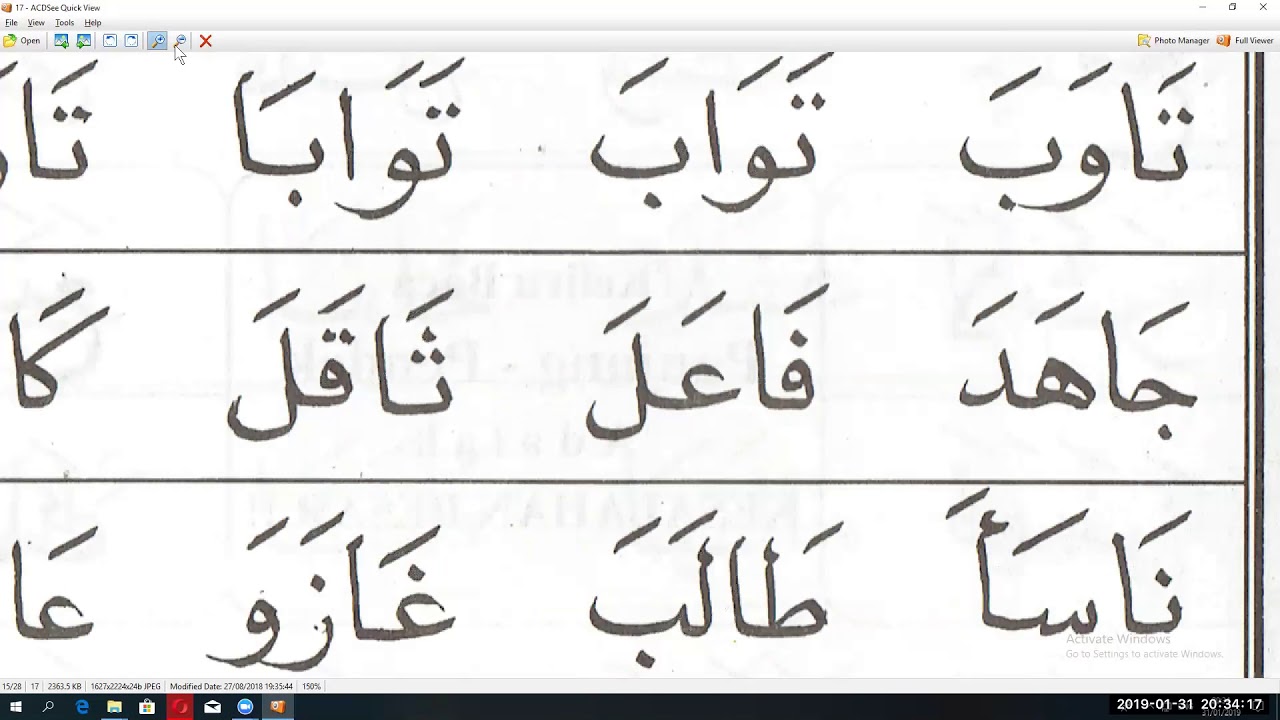 17 - ACDSee Quick View
File View Tools Help
Open Photo Manager Full Viewer
تَاوَبَ تَوَابَ تَوَابَا
جَاهَدَ فَاعَلَ ثَاقَلَ كَا
نَاسَأَ طَالَبَ غَازَوَ عَا
Activate Windows
Go to Settings to activate Windows.
15/28 17 2363.5 KB 1627x2224x24b JPEG Modified Date: 27/08/2018 19:35:44 150%
2019-01-31 20:34:17